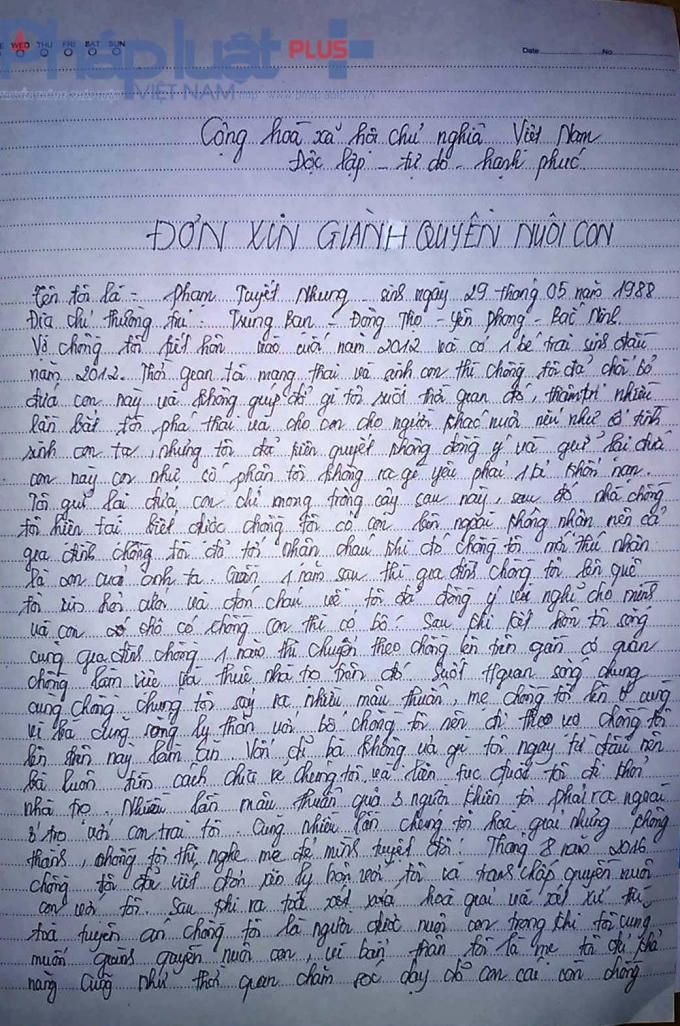 WED THU FRI SAT SUN
Date No
Pháp luật PLUS+
VIỆT NAM
Cộng hoà xã hội chủ nghĩa Việt Nam
Độc lập - tự do - hạnh phúc
ĐƠN XIN GIÀNH QUYỀN NUÔI CON
Tên tôi là - Phạm Tuyết Nhung - sinh ngày 29 tháng 05 năm 1988
Địa chỉ thường trú : Trung Ban - Đông Thọ - Yên Phong - Bắc Ninh
Vợ chồng tôi kết hôn vào cuối năm 2012 và có 1 bé trai sinh đầu
năm 2012. Thời gian tôi mang thai và sinh con thì chồng tôi đã chối bỏ
đứa con này và không giúp đỡ gì tôi suốt thời gian đó, thậm trí nhiều
lần bắt tôi phá thai và cho con cho người khác nuôi nếu như cố tình
sinh con ta, nhưng tôi đã kiên quyết không đồng ý và giữ lại đứa
con này con như số phận tôi không ra gì yêu phải 1 kẻ khốn nạn.
Tôi giữ lại đứa con chỉ mong trông cậy sau này, sau đó nhà chồng
tôi hiện tại biết được chồng tôi có con bên ngoài không nhận nên cả
gia đình chồng tôi đã tới nhận cháu khi đó chồng tôi mới thú nhận
là con của anh ta. Gần 1 năm sau thì gia đình chồng tôi lên quê
tôi xin hỏi cưới và đón cháu về tôi đã đồng ý vì nghĩ cho mình
và con có chỗ có chồng con thì có bố. Sau khi kết hôn tôi sống
cùng gia đình chồng 1 năm thì chuyển theo chồng lên trên gần cơ quan
chồng làm việc và thuê nhà trọ trên đó. Suốt tgian sống chung
cùng chồng chúng tôi sảy ra nhiều mâu thuẫn, mẹ chồng tôi lên ở cùng
vì bà cũng sống ly thân với bố chồng tôi nên đi theo vợ chồng tôi
lên trên này làm ăn. Vốn dĩ bà không ưa gì tôi ngay từ đầu nên
bà luôn tìm cách chia rẽ chúng tôi và liên tục đuổi tôi đi khỏi
nhà trọ. Nhiều lần mâu thuẫn quá 3 người khiến tôi phải ra ngoài
ở trọ với con trai tôi. Cũng nhiều lần chúng tôi hoà giải nhưng không
thành, chồng tôi thì nghe mẹ đẻ mình tuyệt đối. Tháng 8 năm 2016
chồng tôi đã viết đơn xin ly hôn với tôi và tranh chấp quyền nuôi
con với tôi. Sau khi ra toà hoà giải và xét xử thì
toà tuyên án chồng tôi là người được nuôi con trong khi tôi cũng
muốn giành quyền nuôi con, vì bản thân tôi là mẹ tôi đủ khả
năng cũng như thời quan chăm sóc dạy dỗ con cái còn chồng